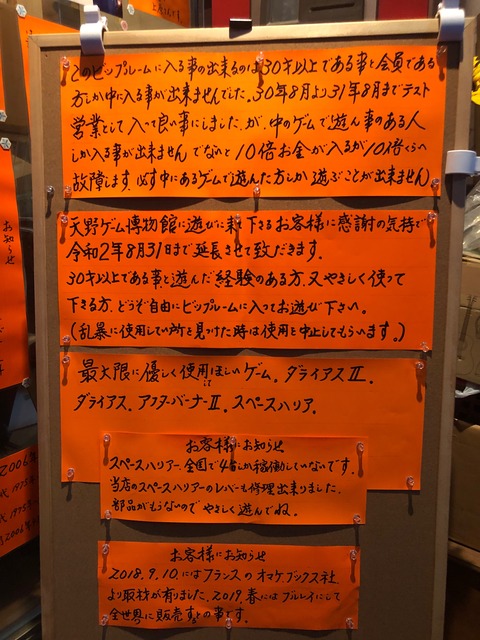 このビップルームに入る事の出来るのは30才以上である事と会員である
方しか中に入る事が出来ませんでした。30年8月より31年8月までテスト
営業として入って良い事にしました。が、中のゲームで遊ん事のある人
しか入る事が出来ません でないと10倍お金が入るが10倍くらい
故障します。必す中にあるゲームで遊んだ方しか遊ぶことが出来ません
天野ゲーム博物館に遊びに来て下さるお客様に感謝の気持で
令和2年8月31日まで延長させて致だきます。
30才以上である事と遊んだ経験のある方、又やさしく使って
下さる方、どうぞ自由にビップルームに入ってお遊び下さい。
(乱暴に使用してい所を見つけた時は使用を中止してもらいます。)
最大限に優しく使用してほしいゲーム。ダライアスⅡ.
ダライアス.アフターバーナーⅡ.スペースハリア.
お客様にお知らせ
スペースハリアー、全国で4台しか稼働していないです.
当店のスペースハリアーのレバーも修理出来りました.
部品がもうないので やさしく遊んでね。
お客様にお知らせ
2018.9.10.にはフランスのオマケ.ブックス社.
より取材が有りました。2019.春にはブルレイにして
全世界に販売するとの事です.
お知らせ
2006年